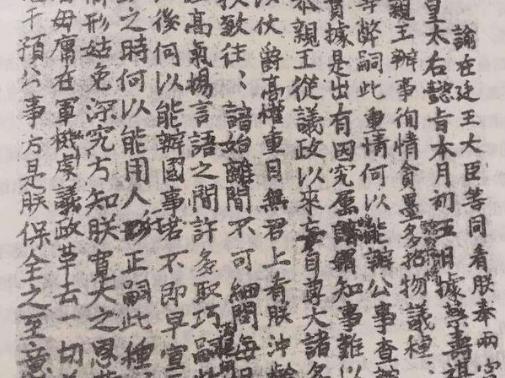 諭在廷王大臣等同看朕奉兩宮
皇太后懿旨本月初五日據蔡壽祺
親王辦事徇情貪墨多招物議種
等弊嗣此重情何以能辦公事查辦
實據是出有因究屬曖昧知事難以
恭親王從議政以來妄自尊大諸多
以仗爵高權重目無君上看朕沖齡
挾致往諳始離間不可細問每日
趾高氣揚言語之間許多取巧
後何以能辦國事若不即早宣
之時何以能用人行正嗣此種
情形姑免深究方知朕寬大之恩
著毋庸在軍機處議政革去一切
干預公事方是朕保全之至意